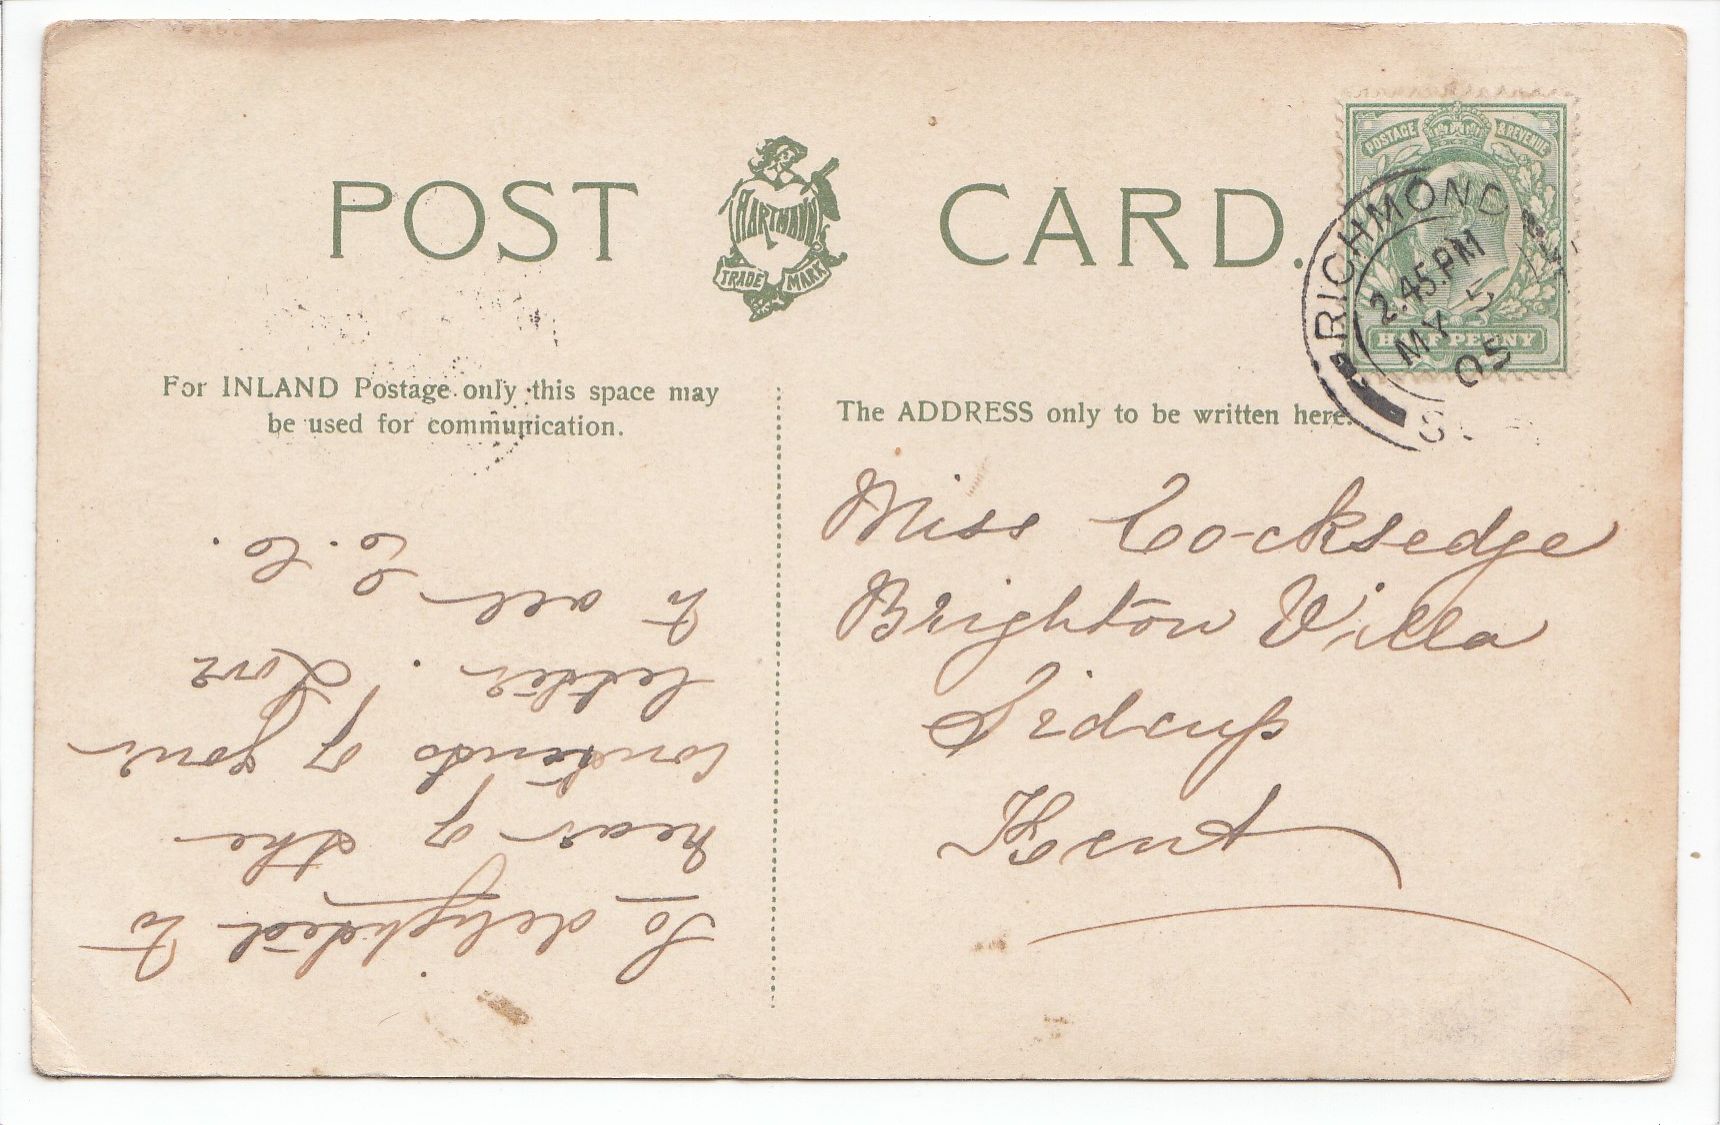 POST CARD.
HARTMANN
TRADE MARK
POSTAGE & REVENUE
HALF PENNY
RICHMOND
2.45.PM
MY 5
05
For INLAND Postage only this space may
be used for communication.
The ADDRESS only to be written here.
Miss Cocksedge
Brighton Villa
Sidcup
Kent
So delighted to
hear of the
contents of your
letter. Love
to all
C. C.